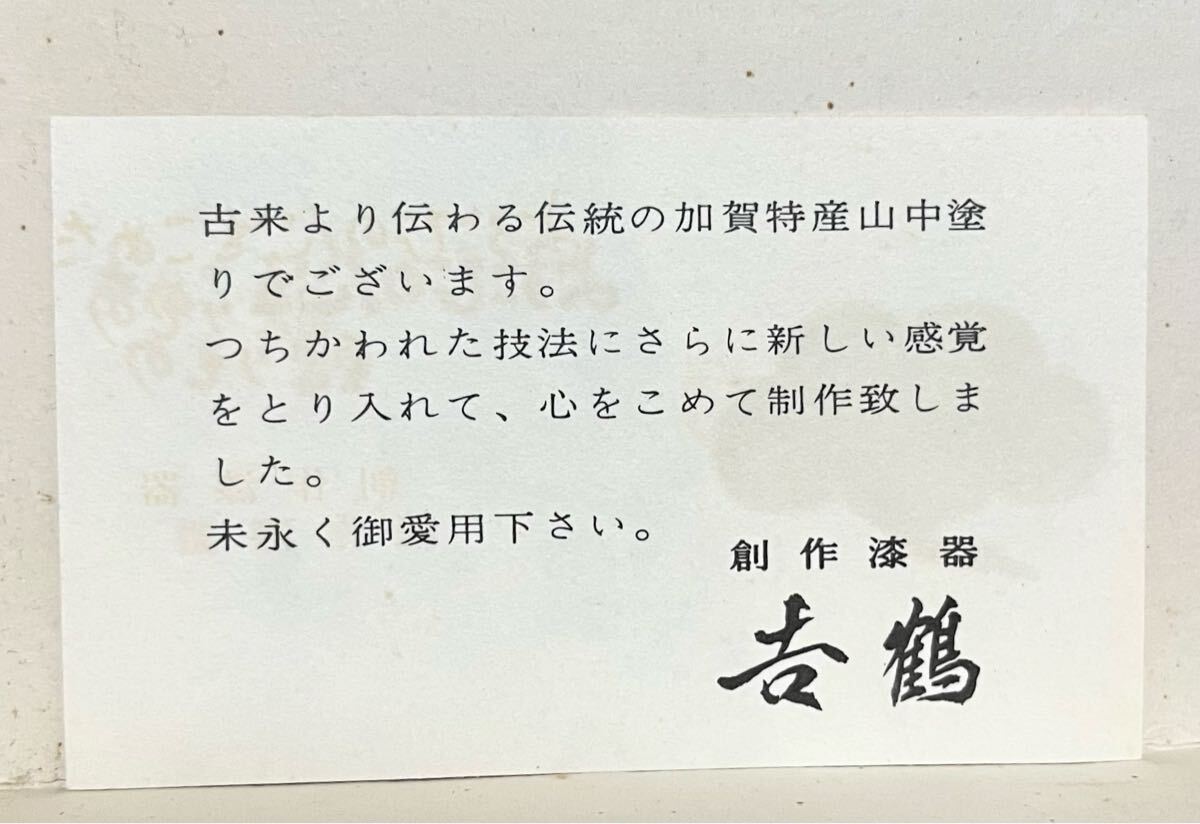 古来より伝わる伝統の加賀特産山中塗
りでございます。
つちかわれた技法にさらに新しい感覚
をとり入れて、心をこめて制作致しま
した。
未永く御愛用下さい。
創作漆器
𠮷鶴